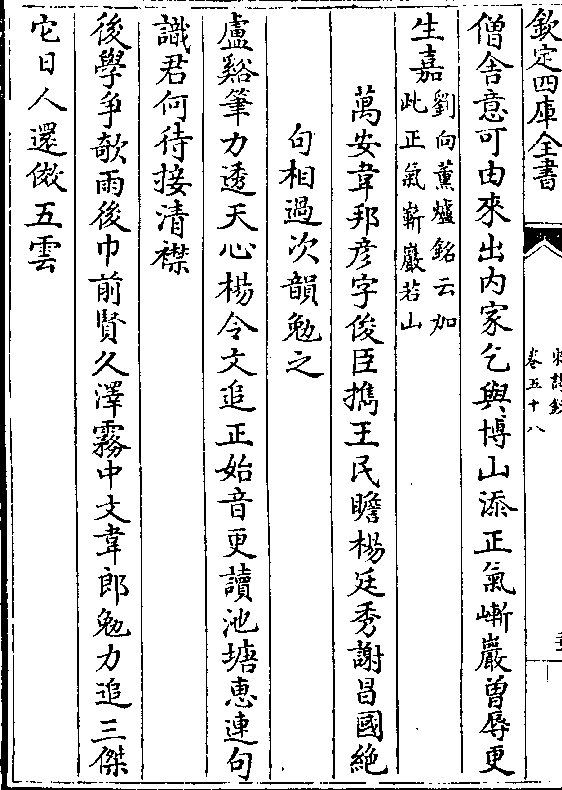 欽定四庫全書
卷五十八
僧舍意可由來出内家乞與博山添正氣嶄巖曽辱更
生嘉劉向薫爐銘云加此正氣嶄巖若山
萬安韋邦彦字俊臣擕王民瞻楊廷秀謝昌國絶
句相過次韻勉之
盧谿筆力透天心楊令文追正始音更讀池塘恵連句
識君何待接清襟
後學爭欹雨後巾前賢久澤霧中文韋郎勉力追三傑
它日人還傚五雲